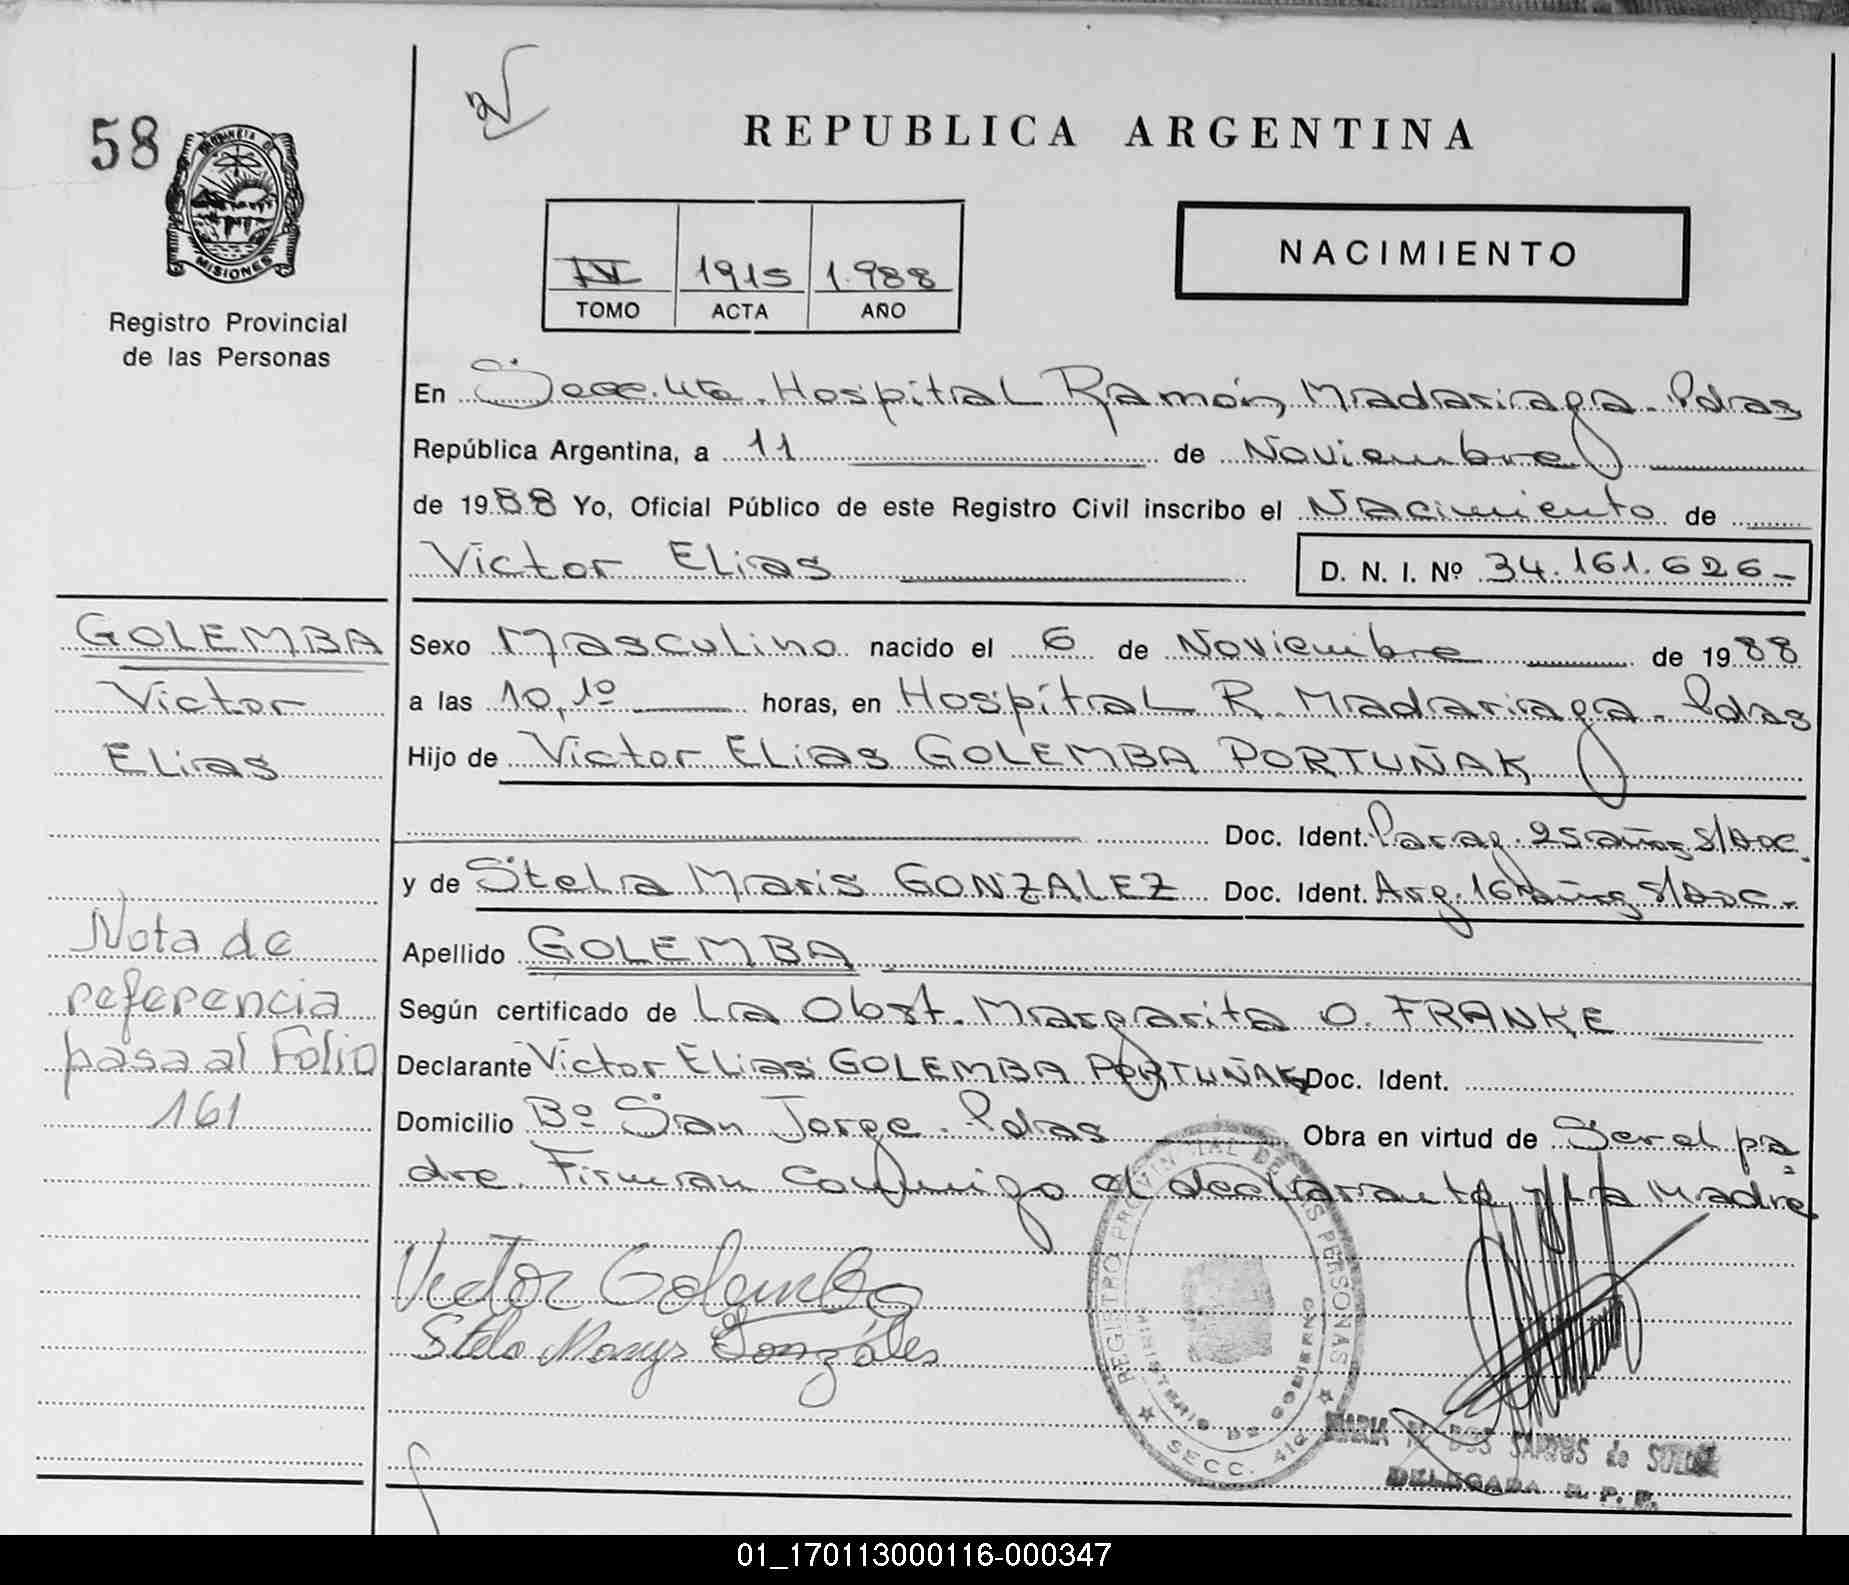 58
PROVINCIA DE
MISIONES
Registro Provincial
de las Personas
REPUBLICA ARGENTINA
IV 1915 1.988
TOMO ACTA AÑO
NACIMIENTO
En Secc. 4ta. Hospital Ramón Madariaga. Pdas
República Argentina, a 11 de Noviembre
de 1988 Yo, Oficial Público de este Registro Civil inscribo el Nacimiento de
Victor Elias D. N. I. Nº 34.161.626-
GOLEMBA
Victor
Elias
Sexo Masculino nacido el 6 de Noviembre de 1988
a las 10,1º horas, en Hospital R. Madariaga. Pdas
Hijo de Victor Elias GOLEMBA PORTUÑAK
Doc. Ident. Parag. 25 años S/Doc.
y de Stela Maris GONZALEZ Doc. Ident. Arg. 16 años S/Doc.
Nota de
referencia
pasa al Folio
161
Apellido GOLEMBA
Según certificado de La Obst. Margarita O. FRANKE
Declarante Victor Elias GOLEMBA PORTUÑAK Doc. Ident.
Domicilio Bº San Jorge. Pdas Obra en virtud de Ser el pa
dre. Firman conmigo el declarante y la Madre
Victor Golemba
Stela Marys Gonzáles
REGISTRO PROVINCIAL DE LAS PERSONAS
MINISTERIO DE GOBIERNO
SECC. 4ta
MARIA DOS SANTOS de
DELEGADA R. P. P.
01_170113000116-000347